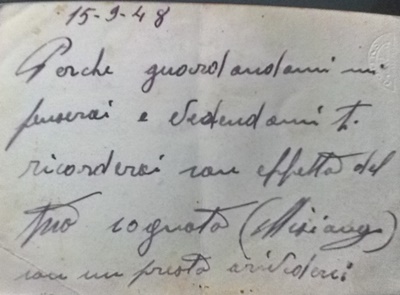 15-9-48
Perche guardandomi mi
penserai e vedendomi ti
ricorderai con effetto del
tuo cognato (
con un presto arivederci